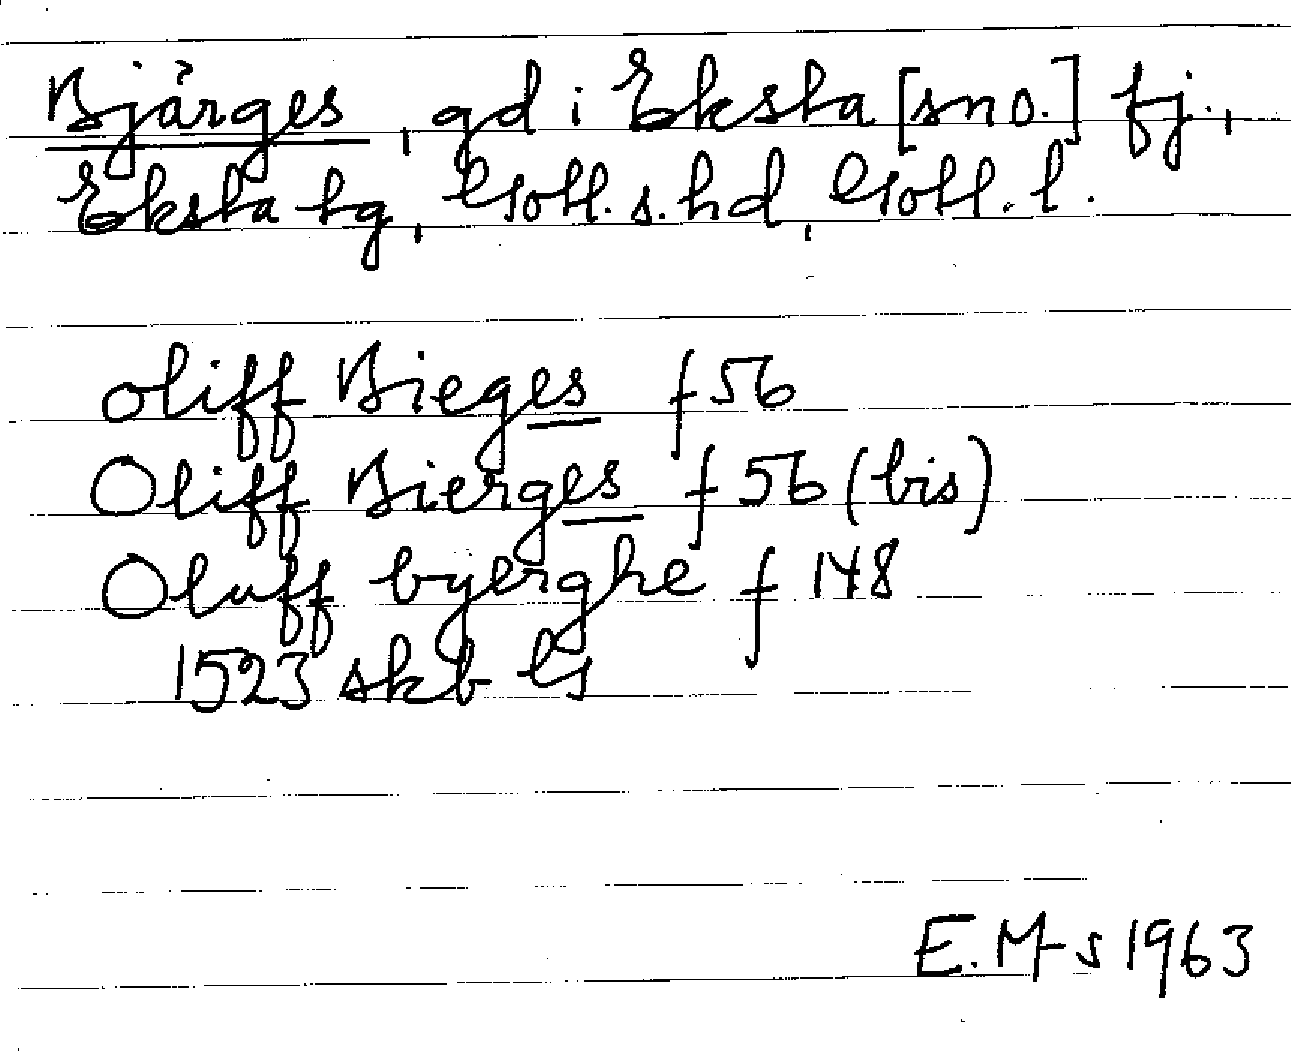 Bjärges, gd i Eksta [sno.] fj.,
Eksta tg, Gotl. s. hd, Gotl. l.
oliff Bieges f 56
Oliff Bierges f 56 (bis)
Oluff byerghe f 148
1523 skb G
E. M-s 1963